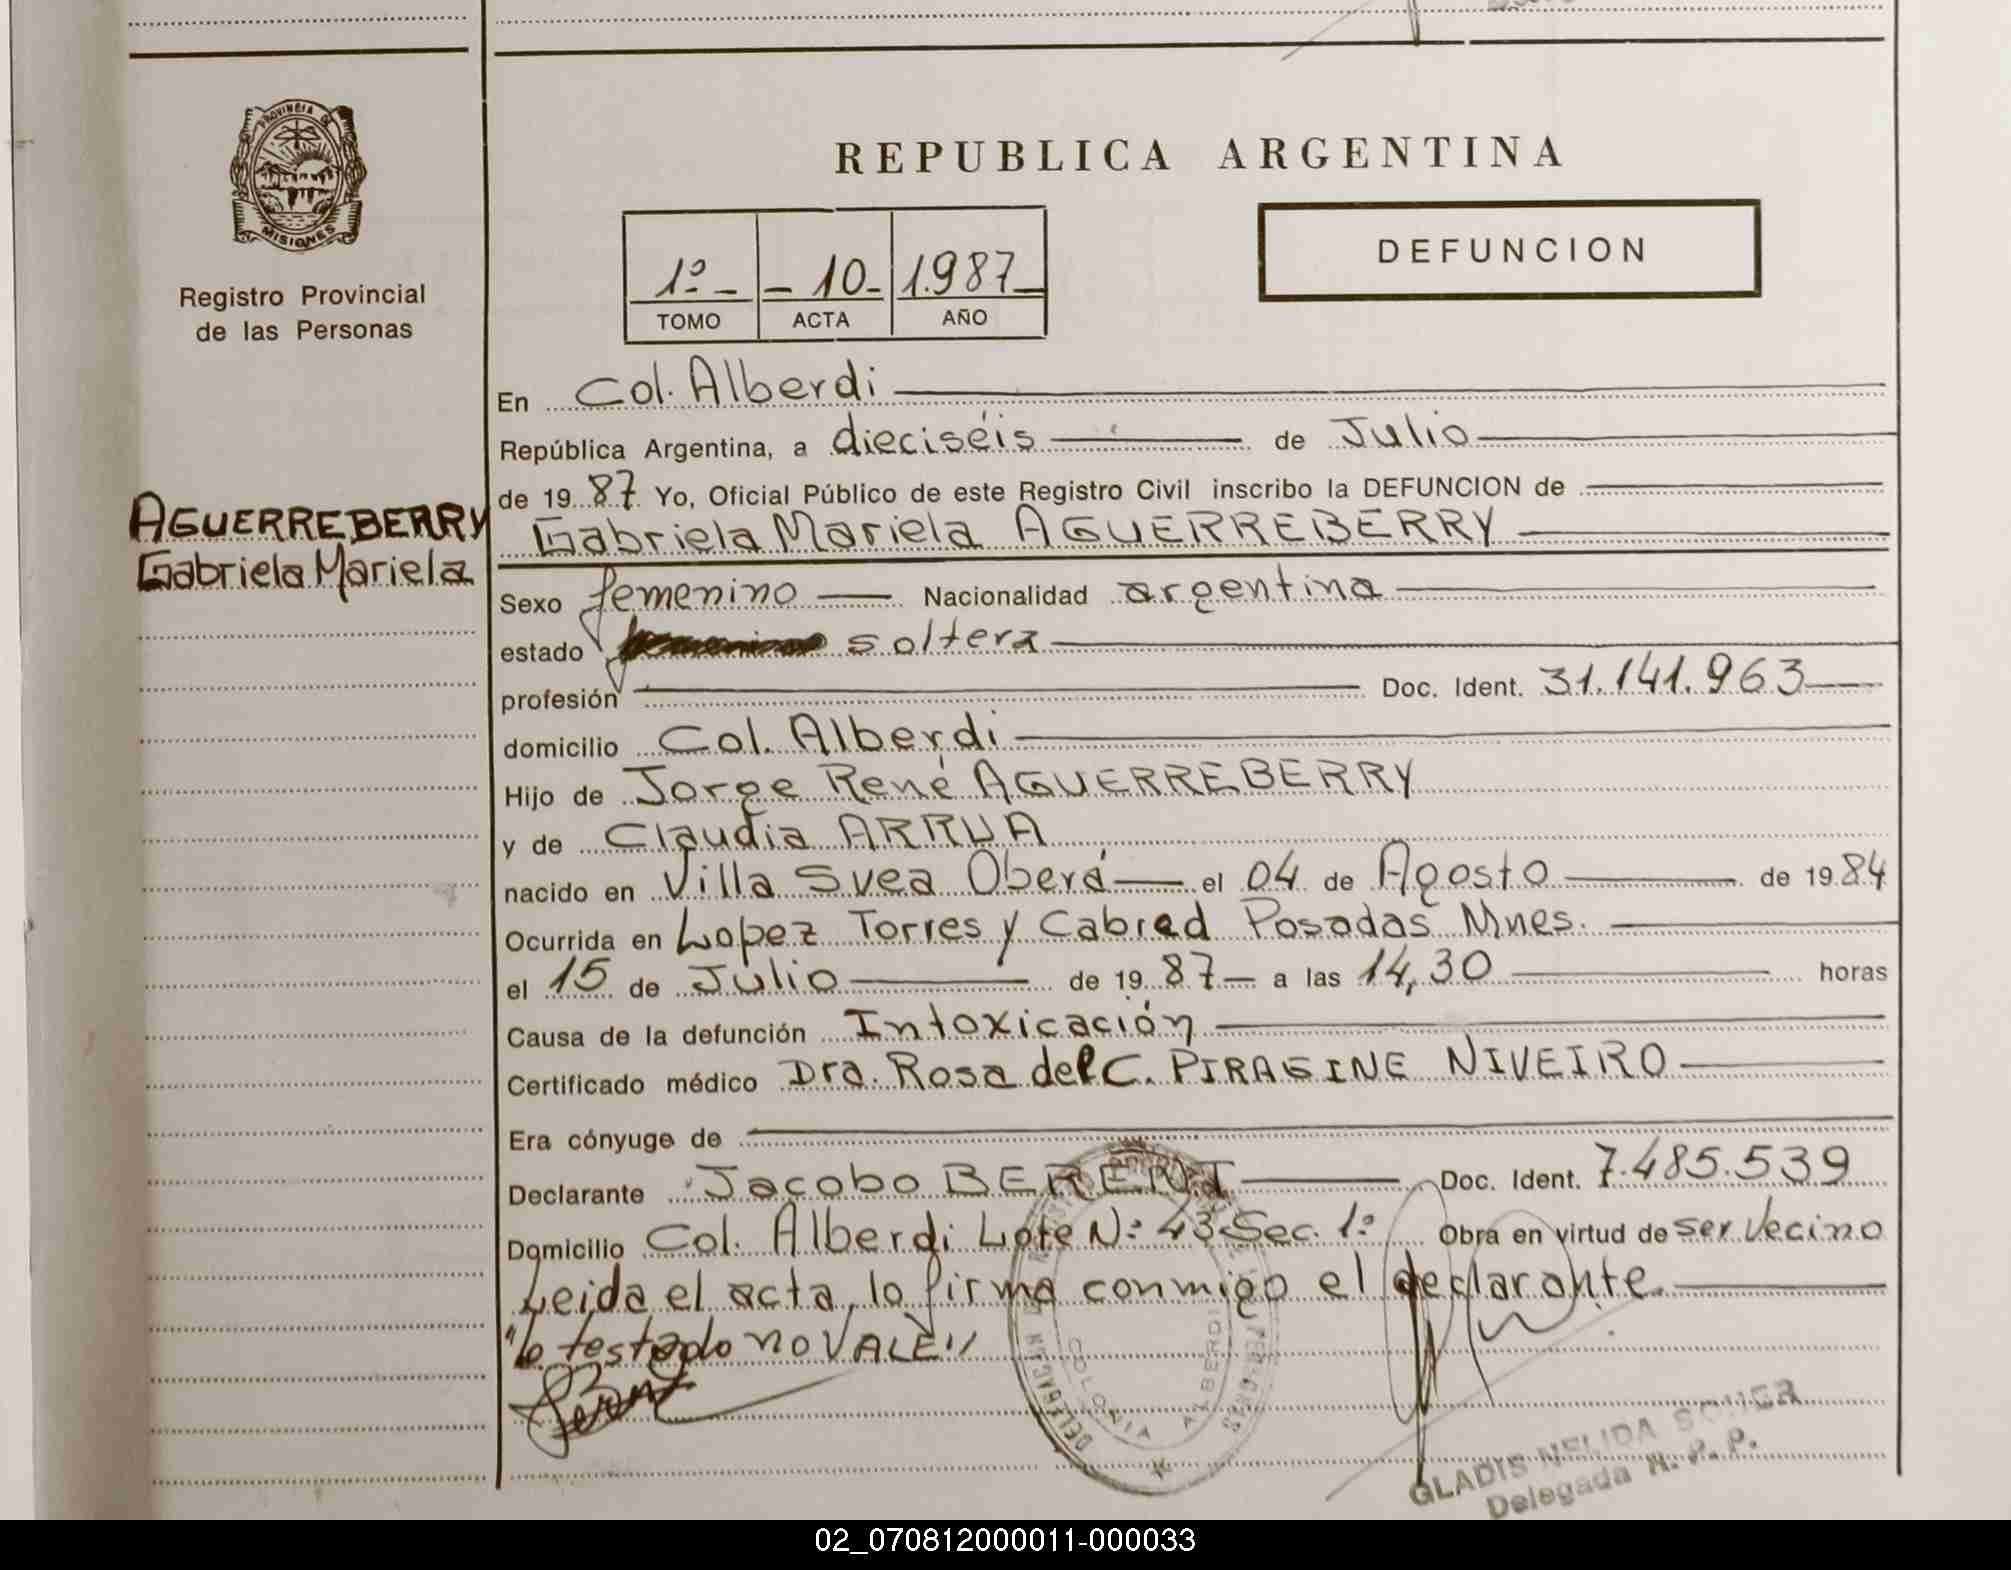 PROVINCIA DE
MISIONES
Registro Provincial
de las Personas
REPUBLICA ARGENTINA
DEFUNCION
1º - - 10 - 1.987
TOMO ACTA AÑO
En Col. Alberdi
República Argentina, a dieciséis de Julio
de 19 87 Yo, Oficial Público de este Registro Civil inscribo la DEFUNCION de
AGUERREBERRY
Gabriela Mariela
Gabriela Mariela AGUERREBERRY
Sexo femenino Nacionalidad argentina
estado femenino soltera
profesión Doc. Ident. 31.141.963
domicilio Col. Alberdi
Hijo de Jorge René AGUERREBERRY
y de Claudia ARRUA
nacido en Villa Svea Oberá el 04 de Agosto de 19 84
Ocurrida en Lopez Torres y Cabred Posadas Mnes.
el 15 de Julio de 19 87 a las 14,30 horas
Causa de la defunción Intoxicación
Certificado médico Dra. Rosa del C. PIRAGINE NIVEIRO
Era cónyuge de
Declarante Jacobo BERENT Doc. Ident. 7.485.539
Domicilio Col. Alberdi Lote Nº 43 Sec. 1º Obra en virtud de ser vecino
Leida el acta, lo firma conmigo el declarante.
"lo testado no VALE"
DELEGACION
COLONIA ALBERDI
GLADIS NELIDA
Delegada R. P. P.
02_070812000011-000033